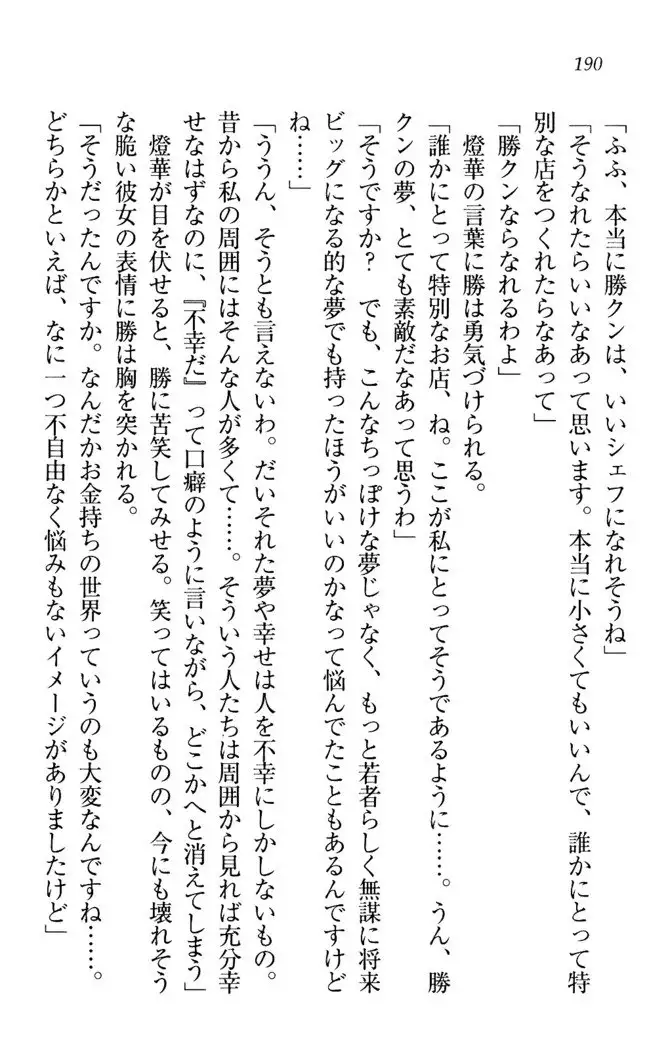 190
「ふふ、本当に勝クンは、いいシェフになれそうね」
「そうなれたらいいなあって思います。本当に小さくてもいいんで、誰かにとって特
別な店をつくれたらなあって」
「勝クンならなれるわよ」
　燈華の言葉に勝は勇気づけられる。
「誰かにとって特別なお店、ね。ここが私にとってそうであるように……。うん、勝
クンの夢、とても素敵だなあって思うわ」
「そうですか？　でも、こんなちっぽけな夢じゃなく、もっと若者らしく無謀に将来
ビッグになる的な夢でも持ったほうがいいのかなって悩んでたこともあるんですけど
ね……」
「ううん、そうとも言えないわ。だいそれた夢や幸せは人を不幸にしかしないもの。
昔から私の周囲にはそんな人が多くて……。そういう人たちは周囲から見れば充分幸
せなはずなのに、『不幸だ』って口癖のように言いながら、どこかへと消えてしまう」
　燈華が目を伏せると、勝に苦笑してみせる。笑ってはいるものの、今にも壊れそう
な脆い彼女の表情に勝は胸を突かれる。
「そうだったんですか。なんだかお金持ちの世界っていうのも大変なんですね……。
どちらかといえば、なに一つ不自由なく悩みもないイメージがありましたけど」